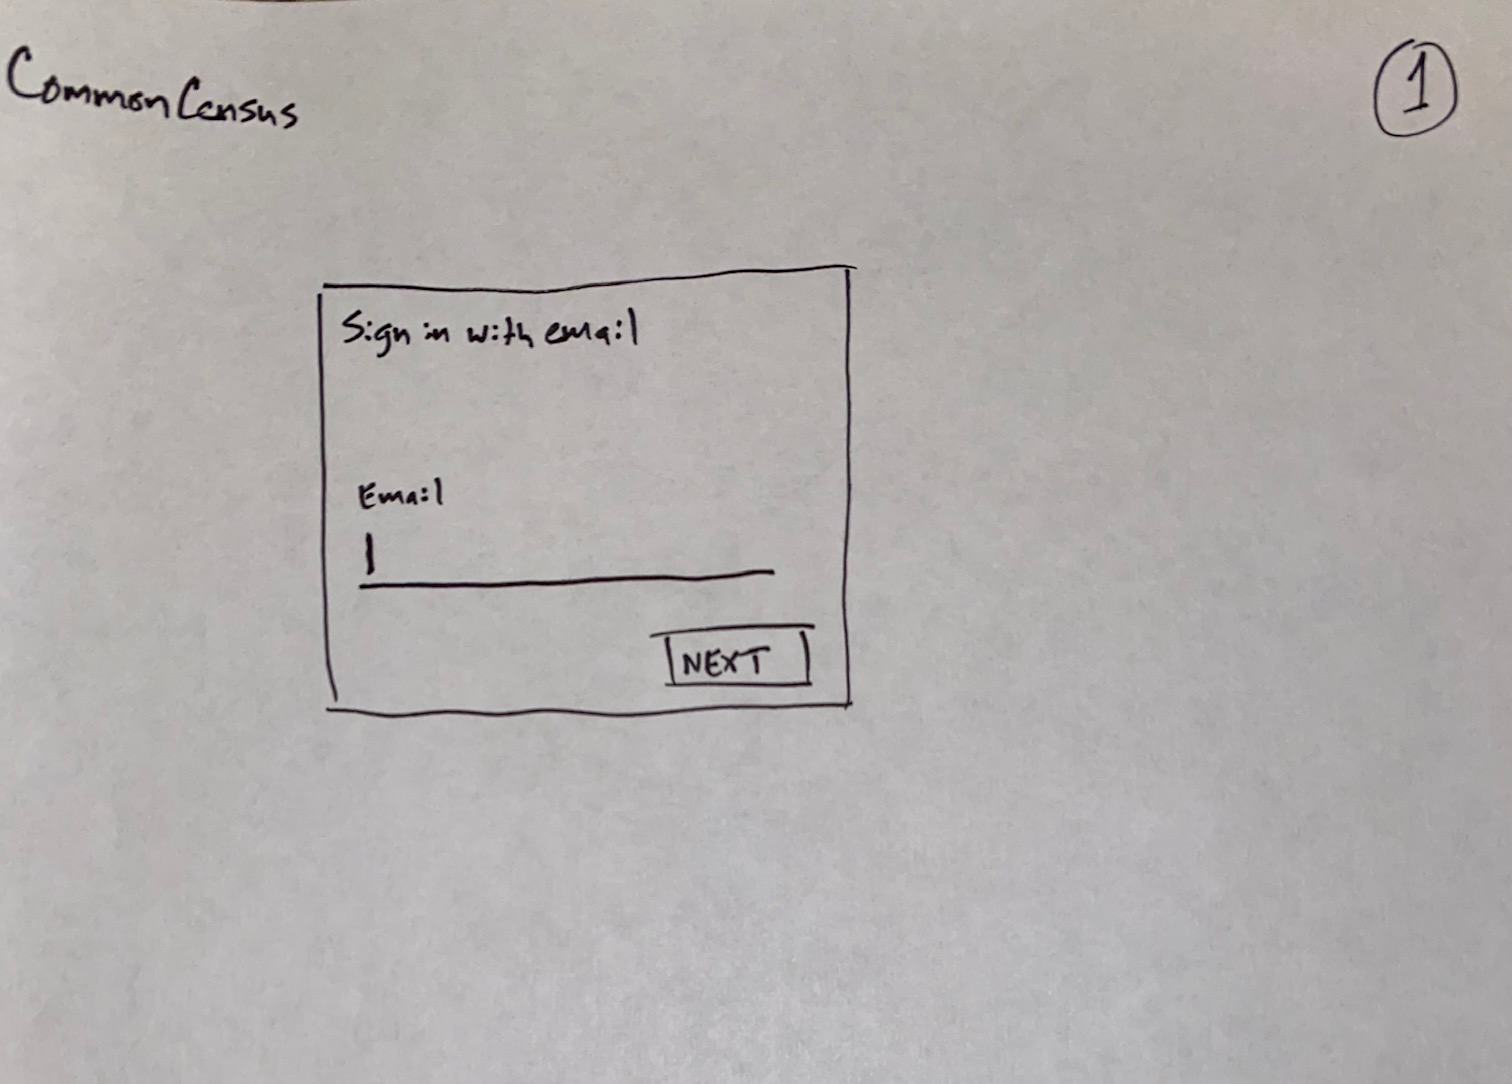 CommonCensus
1
Sign in with email
Email
NEXT